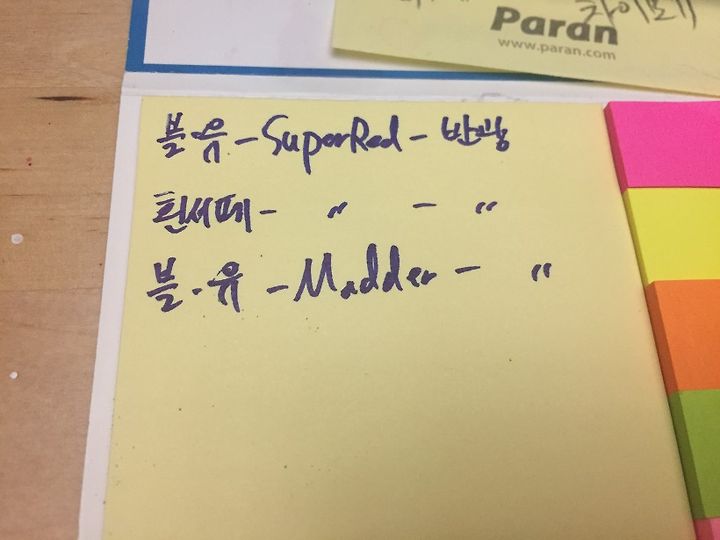 라이페
Paran
www.paran.com
블.유 - SuperRed - 반광
흰써페 - " - "
블.유 - Madder - "